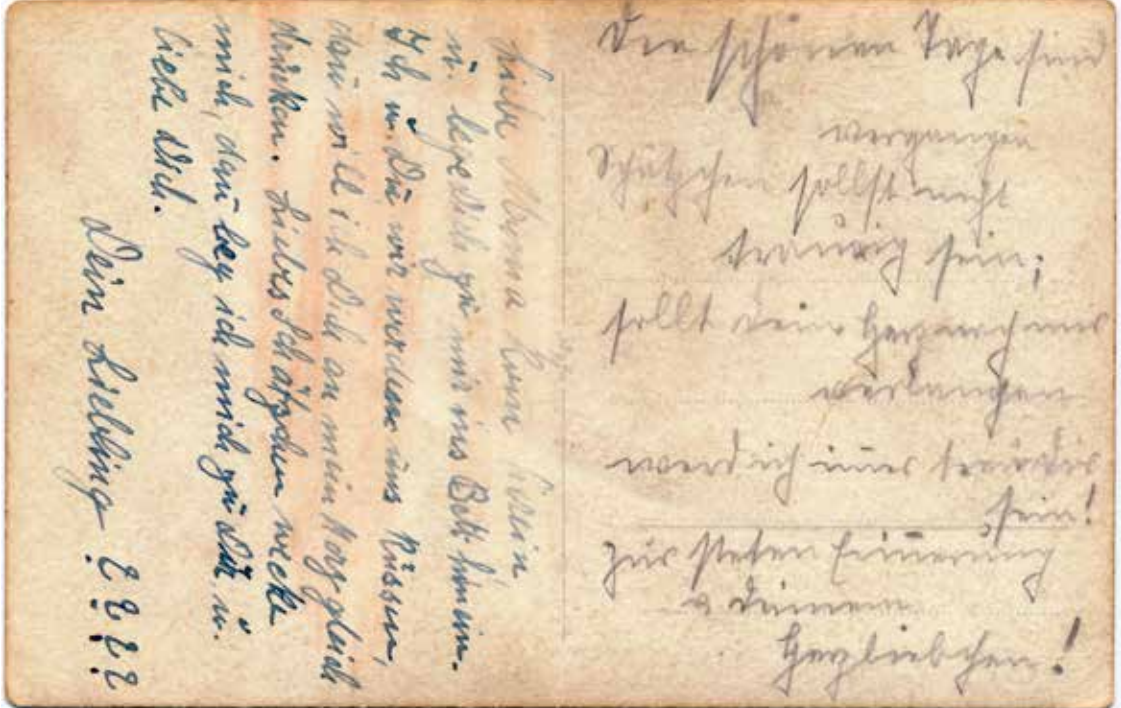 Liebe komm herein
u. lege Dich zu mir ins Bett hinein.
Ich u. Du wir werden uns küssen,
dan̄ will ich Dich an mein Herz gleich
drücken. Liebes Schätzchen wecke
mich, dan̄ leg ich mich zu Dir u.
liebe Dich.
Dein Liebling ? ? ? ?
Die schönen Tage sind
vergangen
Schätzchen sollst nicht
traurig sein;
sollt dein Herz nach mir
verlangen
werd ich im̄er treu dir
sein!
Zur steten Erin̄erung
v. deinem
Herzliebchen!